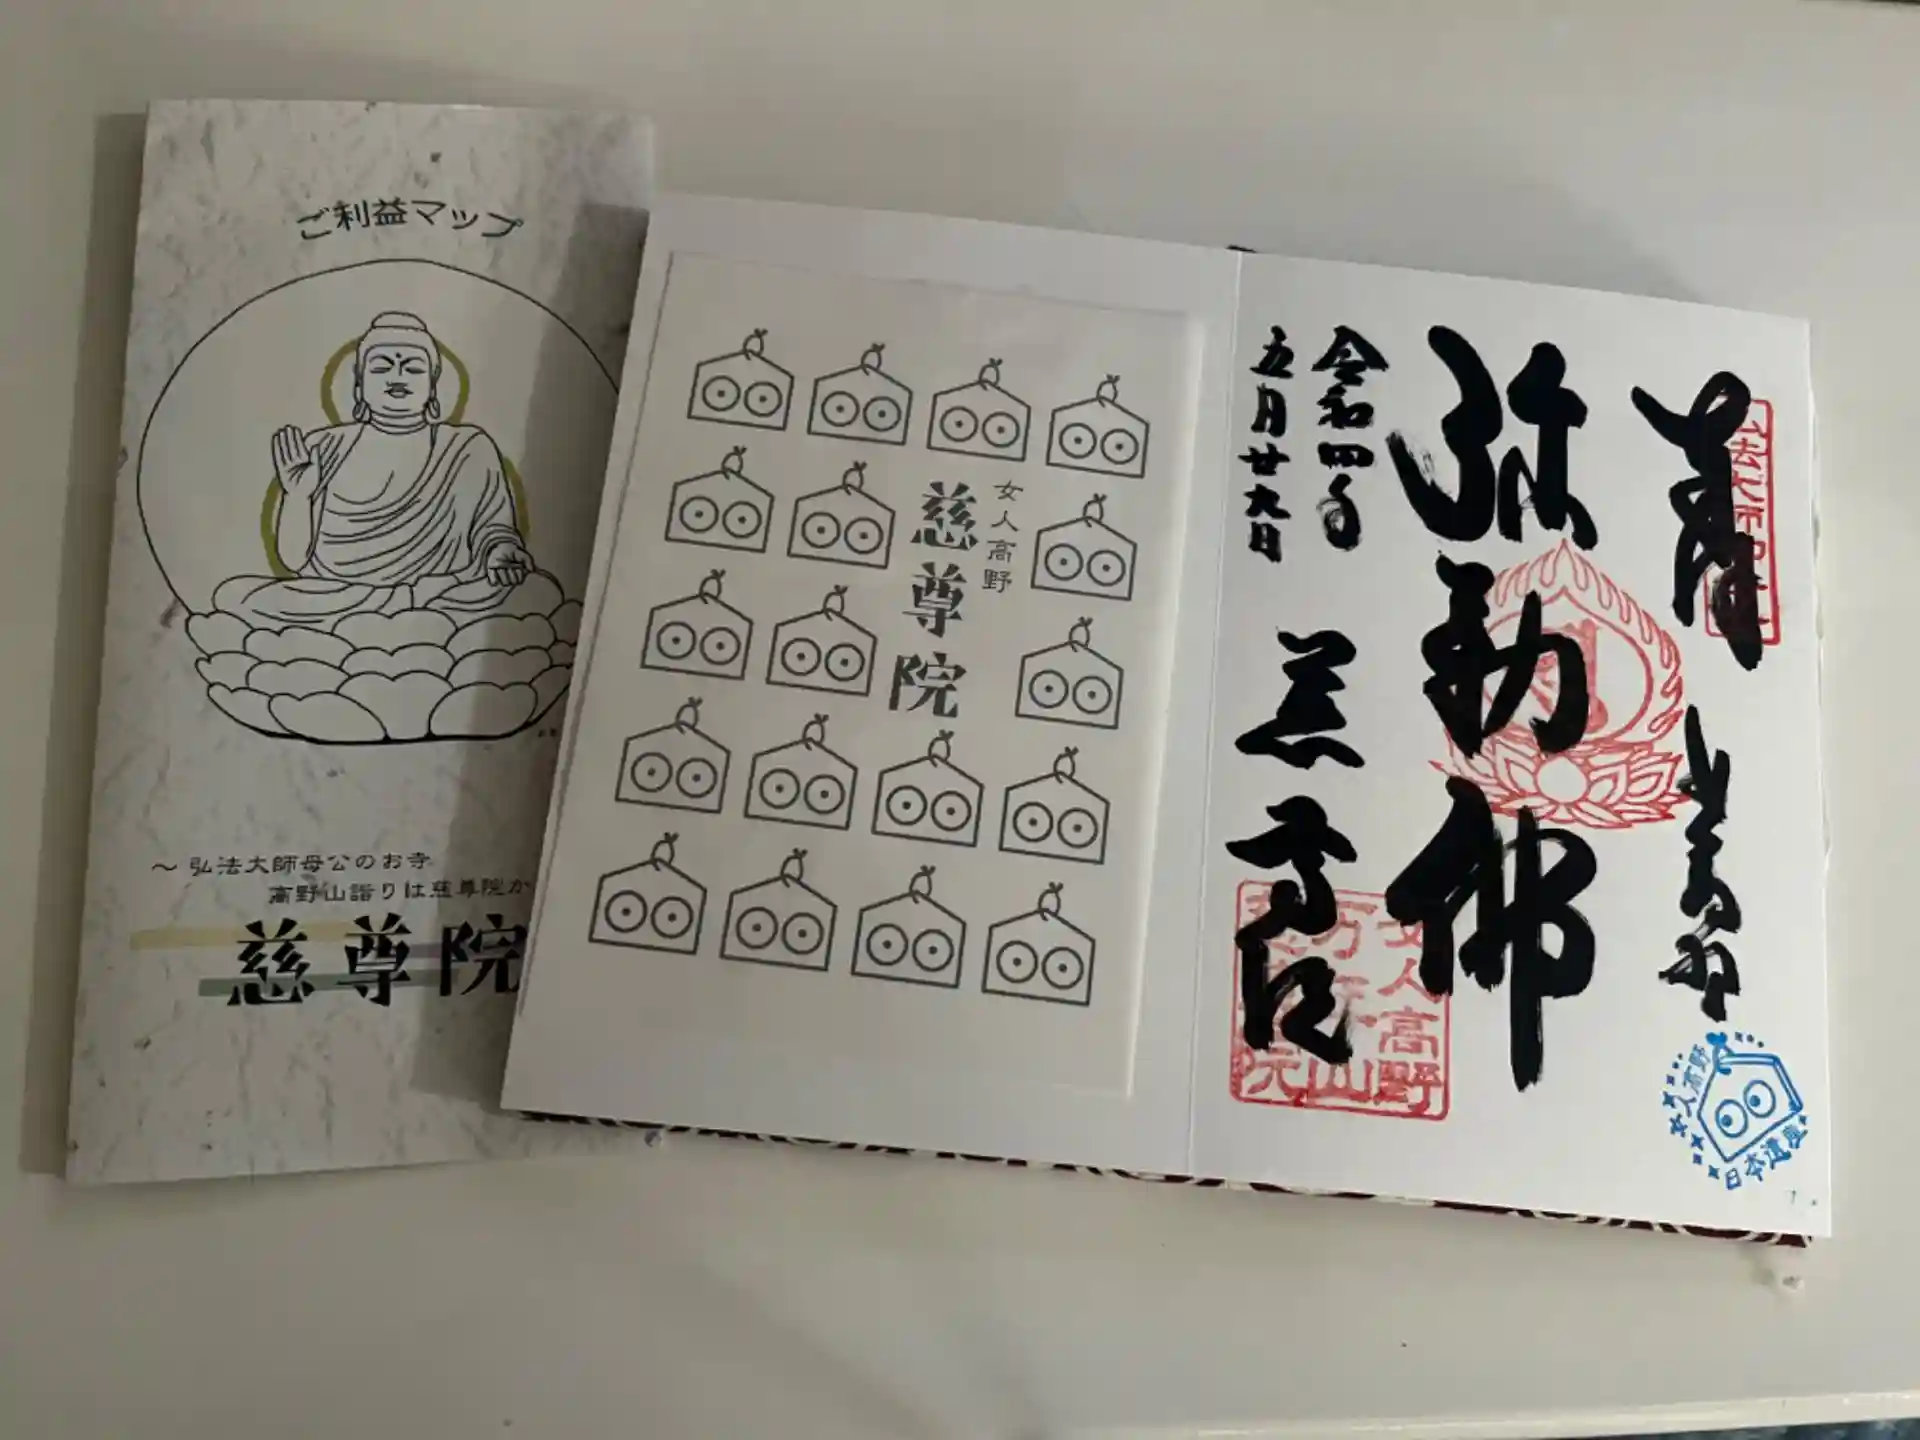 ご利益マップ
～弘法大師母公のお寺
高野山詣りは慈尊院か
慈尊院
女人高野
慈尊院
奉拝
女人高野
弥勒佛
令和四年
五月廿九日
慈尊院
女人高野
万年山
慈尊院
女人高野
日本遺産